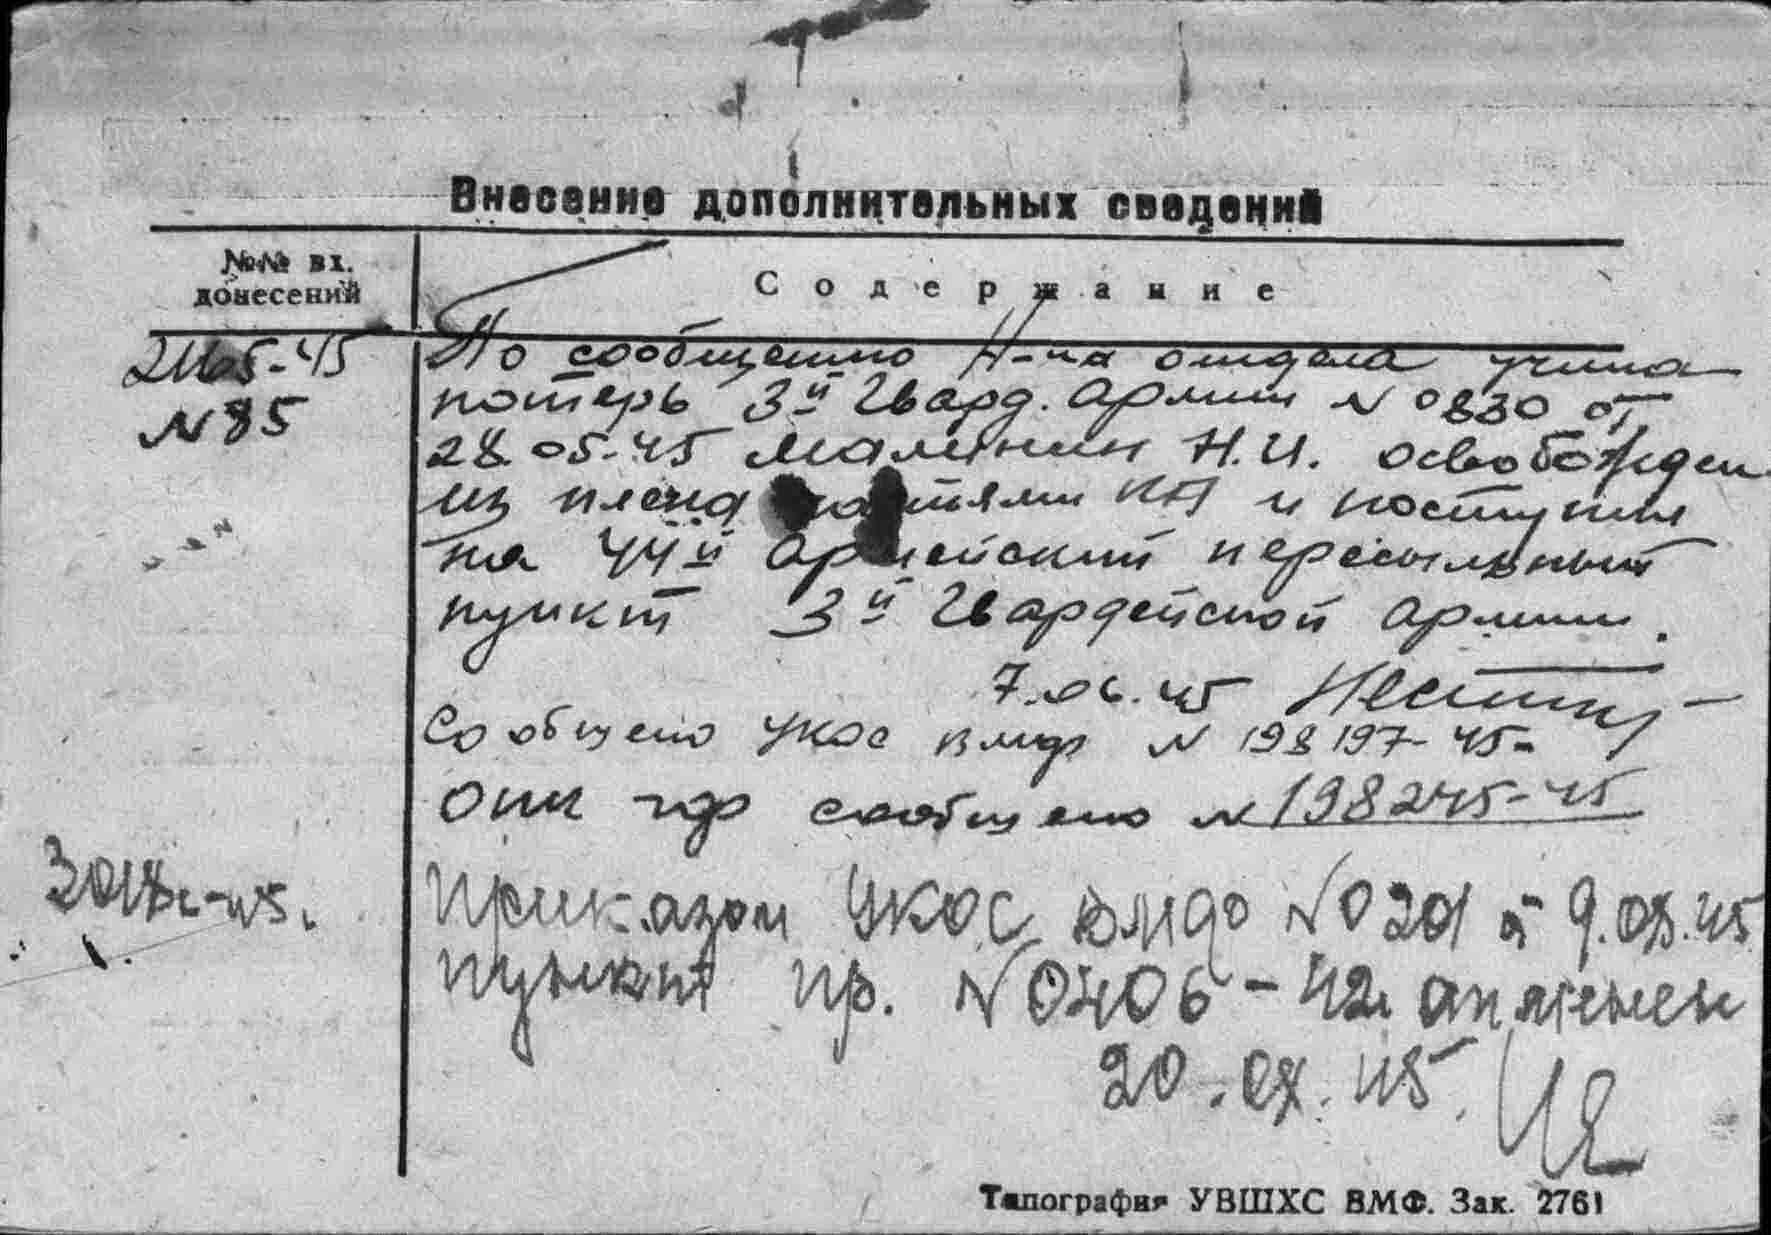 Внесение дополнительных сведений
№№ вх.
донесений
Содержание
По сообщению Н-ка отдела учета
N 85
потерь 3й Гвард. Армии N 0830 от
28.05.45 Маленин Н.И. освобожден
из плена частями КА и поступил
на 44й армейский пересыльный
пункт 3й Гвардейской Армии.
7.06.45
Сообщено УКОС ВМФ N 198197-45-
сообщено N 198245-45
Приказом УКОС ВМФ N 0201 от 9.08.45
пункт пр. N 0406-42 отменен
20.08.45.
Типография УВШХС ВМФ. Зак. 2761